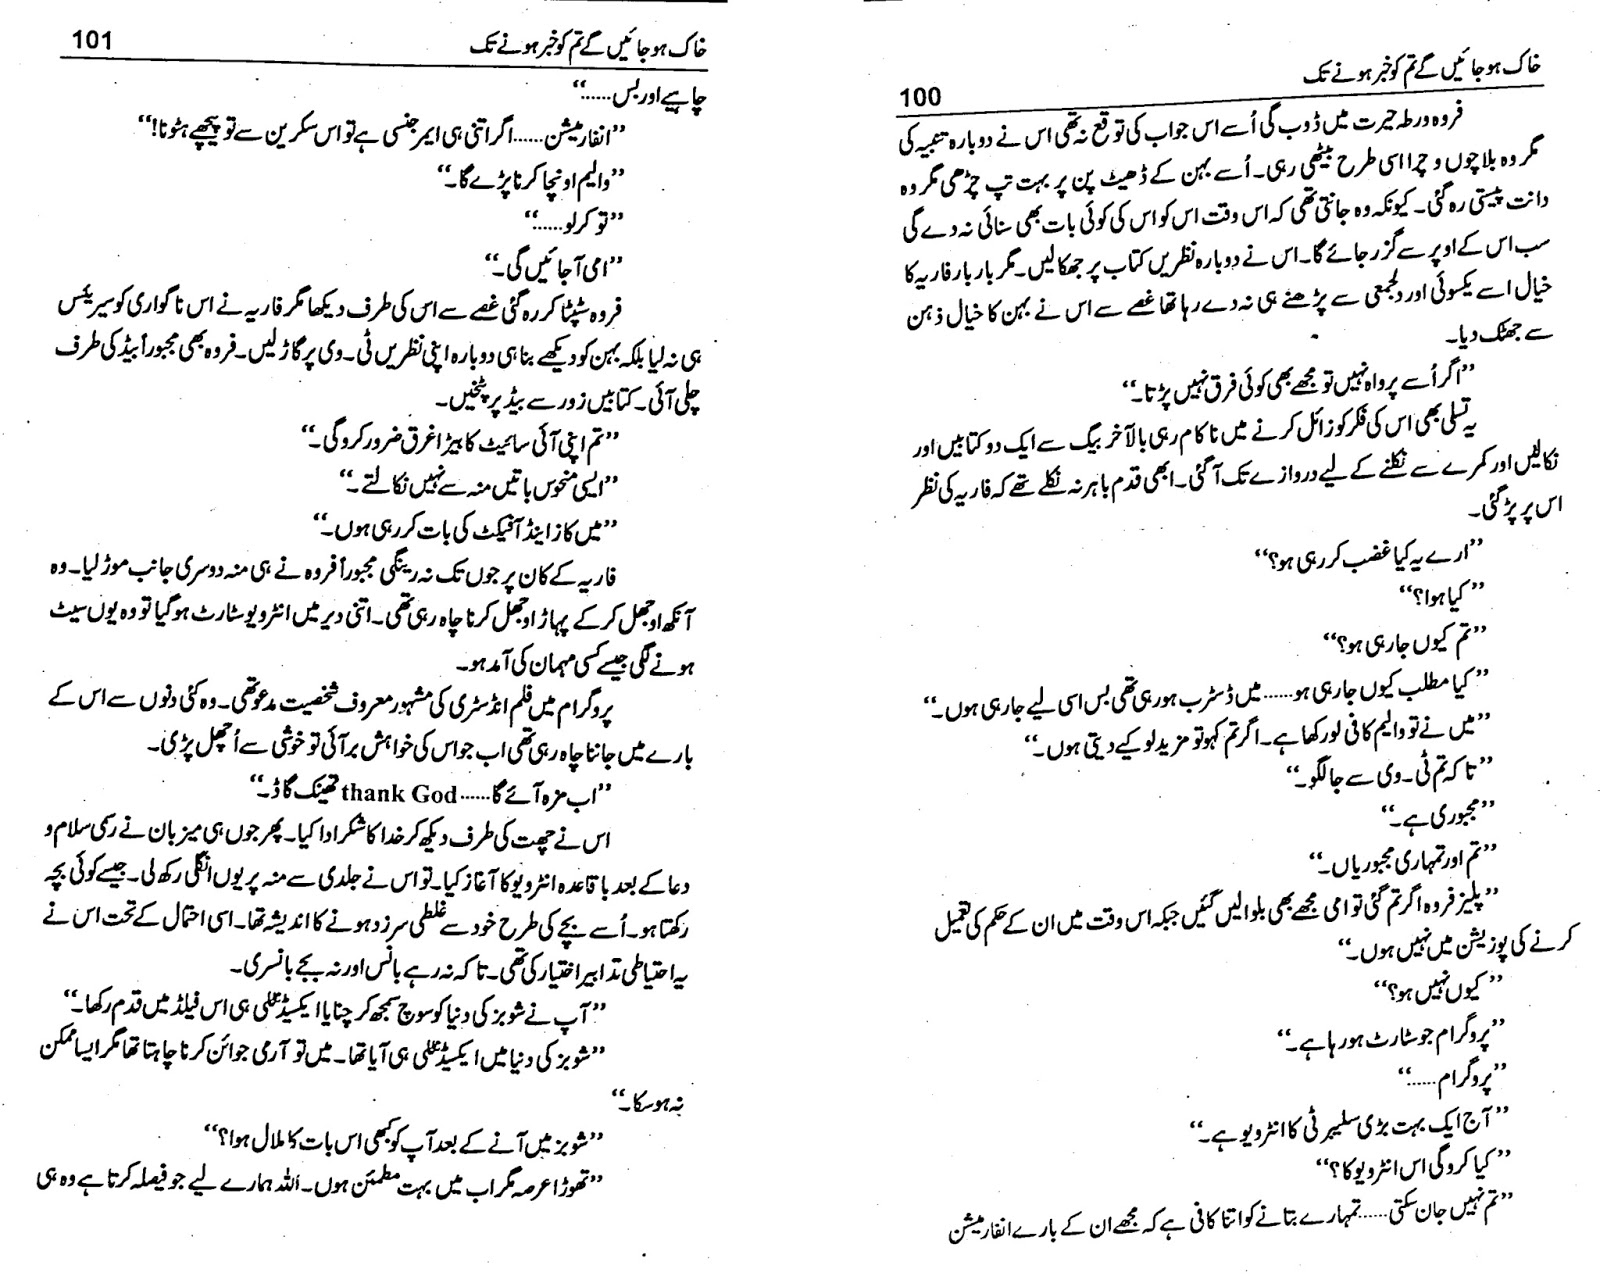 خاک ہو جائیں گے تم کو خبر ہونے تک
100
فروہ ورطہ حیرت میں ڈوب گی اُسے اس جواب کی توقع نہ تھی اس نے دوبارہ تنبیہ کی
مگر وہ بلا چوں و چرا اسی طرح بیٹھی رہی۔ اُسے بہن کے ڈھیٹ پن پر بہت تپ چڑھی مگر وہ
دانت پیستی رہ گئی۔ کیونکہ وہ جانتی تھی کہ اس وقت اس کو اس کی کوئی بات بھی سنائی نہ دے گی
سب اس کے اوپر سے گزر جائے گا۔ اس نے دوبارہ نظریں کتاب پر جھکا لیں۔ مگر بار بار فاریہ کا
خیال اسے یکسوئی اور دلجمعی سے پڑھنے ہی نہ دے رہا تھا غصے سے اس نے بہن کا خیال ذہن
سے جھٹک دیا۔
”اگر اُسے پرواہ نہیں تو مجھے بھی کوئی فرق نہیں پڑتا۔“
یہ تسلی بھی اس کی فکر کو زائل کرنے میں ناکام رہی بالآخر بیگ سے ایک دو کتابیں اور
نکالیں اور کمرے سے نکلنے کے لیے دروازے تک آ گئی۔ ابھی قدم باہر نہ نکلے تھے کہ فاریہ کی نظر
اس پر پڑ گئی۔
”ارے یہ کیا غضب کر رہی ہو؟“
”کیا ہوا؟“
”تم کیوں جا رہی ہو؟“
”کیا مطلب کیوں جا رہی ہو...... میں ڈسٹرب ہو رہی تھی بس اسی لیے جا رہی ہوں۔“
”میں نے تو والیم کافی لو رکھا ہے۔ اگر تم کہو تو مزید لو کیے دیتی ہوں۔“
”تا کہ تم ٹی۔ وی سے جا لگو۔“
”مجبوری ہے۔“
”تم اور تمہاری مجبوریاں۔“
”پلیز فروہ اگر تم گئی تو امی مجھے بھی بلوا لیں گئیں جبکہ اس وقت میں ان کے حکم کی تعمیل
کرنے کی پوزیشن میں نہیں ہوں۔“
”کیوں نہیں ہو؟“
”پروگرام جو سٹارٹ ہو رہا ہے۔“
”پروگرام......“
”آج ایک بہت بڑی سلیبرٹی کا انٹرویو ہے۔“
”کیا کرو گی اس انٹرویو کا؟“
”تم نہیں جان سکتی...... تمہارے بتانے کو اتنا کافی ہے کہ مجھے ان کے بارے انفارمیشن
خاک ہو جائیں گے تم کو خبر ہونے تک
101
چاہیے اور بس......“
”انفارمیشن...... اگر اتنی ہی ایمرجنسی ہے تو اس سکرین سے تو پیچھے ہٹو نا!“
”والیم اونچا کرنا پڑے گا۔“
”تو کر لو......“
”امی آ جائیں گی۔“
فروہ سٹپٹا کر رہ گئی غصے سے اس کی طرف دیکھا مگر فاریہ نے اس ناگواری کو سیریئس
ہی نہ لیا بلکہ بہن کو دیکھے بنا ہی دوبارہ اپنی نظریں ٹی۔ وی پر گاڑ لیں۔ فروہ بھی مجبوراً بیڈ کی طرف
چلی آئی۔ کتابیں زور سے بیڈ پر پٹخیں۔
”تم اپنی آئی سائیٹ کا بیڑا غرق ضرور کرو گی۔“
”ایسی منحوس باتیں منہ سے نہیں نکالتے۔“
”میں کاز اینڈ آفیکٹ کی بات کر رہی ہوں۔“
فاریہ کے کان پر جوں تک نہ رینگی مجبوراً فروہ نے ہی منہ دوسری جانب موڑ لیا۔ وہ
آنکھ اوجھل کر کے پہاڑ اوجھل کرنا چاہ رہی تھی۔ اتنی دیر میں انٹرویو سٹارٹ ہو گیا تو وہ یوں سیٹ
ہونے لگی جیسے کسی مہمان کی آمد ہو۔
پروگرام میں فلم انڈسٹری کی مشہور معروف شخصیت مدعو تھی۔ وہ کئی دنوں سے اس کے
بارے میں جاننا چاہ رہی تھی اب جو اس کی خواہش بر آئی تو خوشی سے اُچھل پڑی۔
”اب مزہ آئے گا...... thank God تھینک گاڈ۔“
اس نے چھت کی طرف دیکھ کر خدا کا شکر ادا کیا۔ پھر جوں ہی میزبان نے رسمی سلام و
دعا کے بعد باقاعدہ انٹرویو کا آغاز کیا۔ تو اس نے جلدی سے منہ پر یوں انگلی رکھ لی۔ جیسے کوئی بچہ
رکھتا ہو۔ اُسے بچے کی طرح خود سے غلطی سرزد ہونے کا اندیشہ تھا۔ اسی احتمال کے تحت اس نے
یہ احتیاطی تدابیر اختیار کی تھی۔ تا کہ نہ رہے بانس اور نہ بجے بانسری۔
”آپ نے شوبز کی دنیا کو سوچ سمجھ کر چنا یا ایکسیڈنٹلی ہی اس فیلڈ میں قدم رکھا۔“
”شوبز کی دنیا میں ایکسیڈنٹلی ہی آیا تھا۔ میں تو آرمی جوائن کرنا چاہتا تھا مگر ایسا ممکن
نہ ہو سکا۔“
”شوبز میں آنے کے بعد آپ کو کبھی اس بات کا ملال ہوا؟“
”تھوڑا عرصہ مگر اب میں بہت مطمئن ہوں۔ اللہ ہمارے لیے جو فیصلہ کرتا ہے وہ ہی